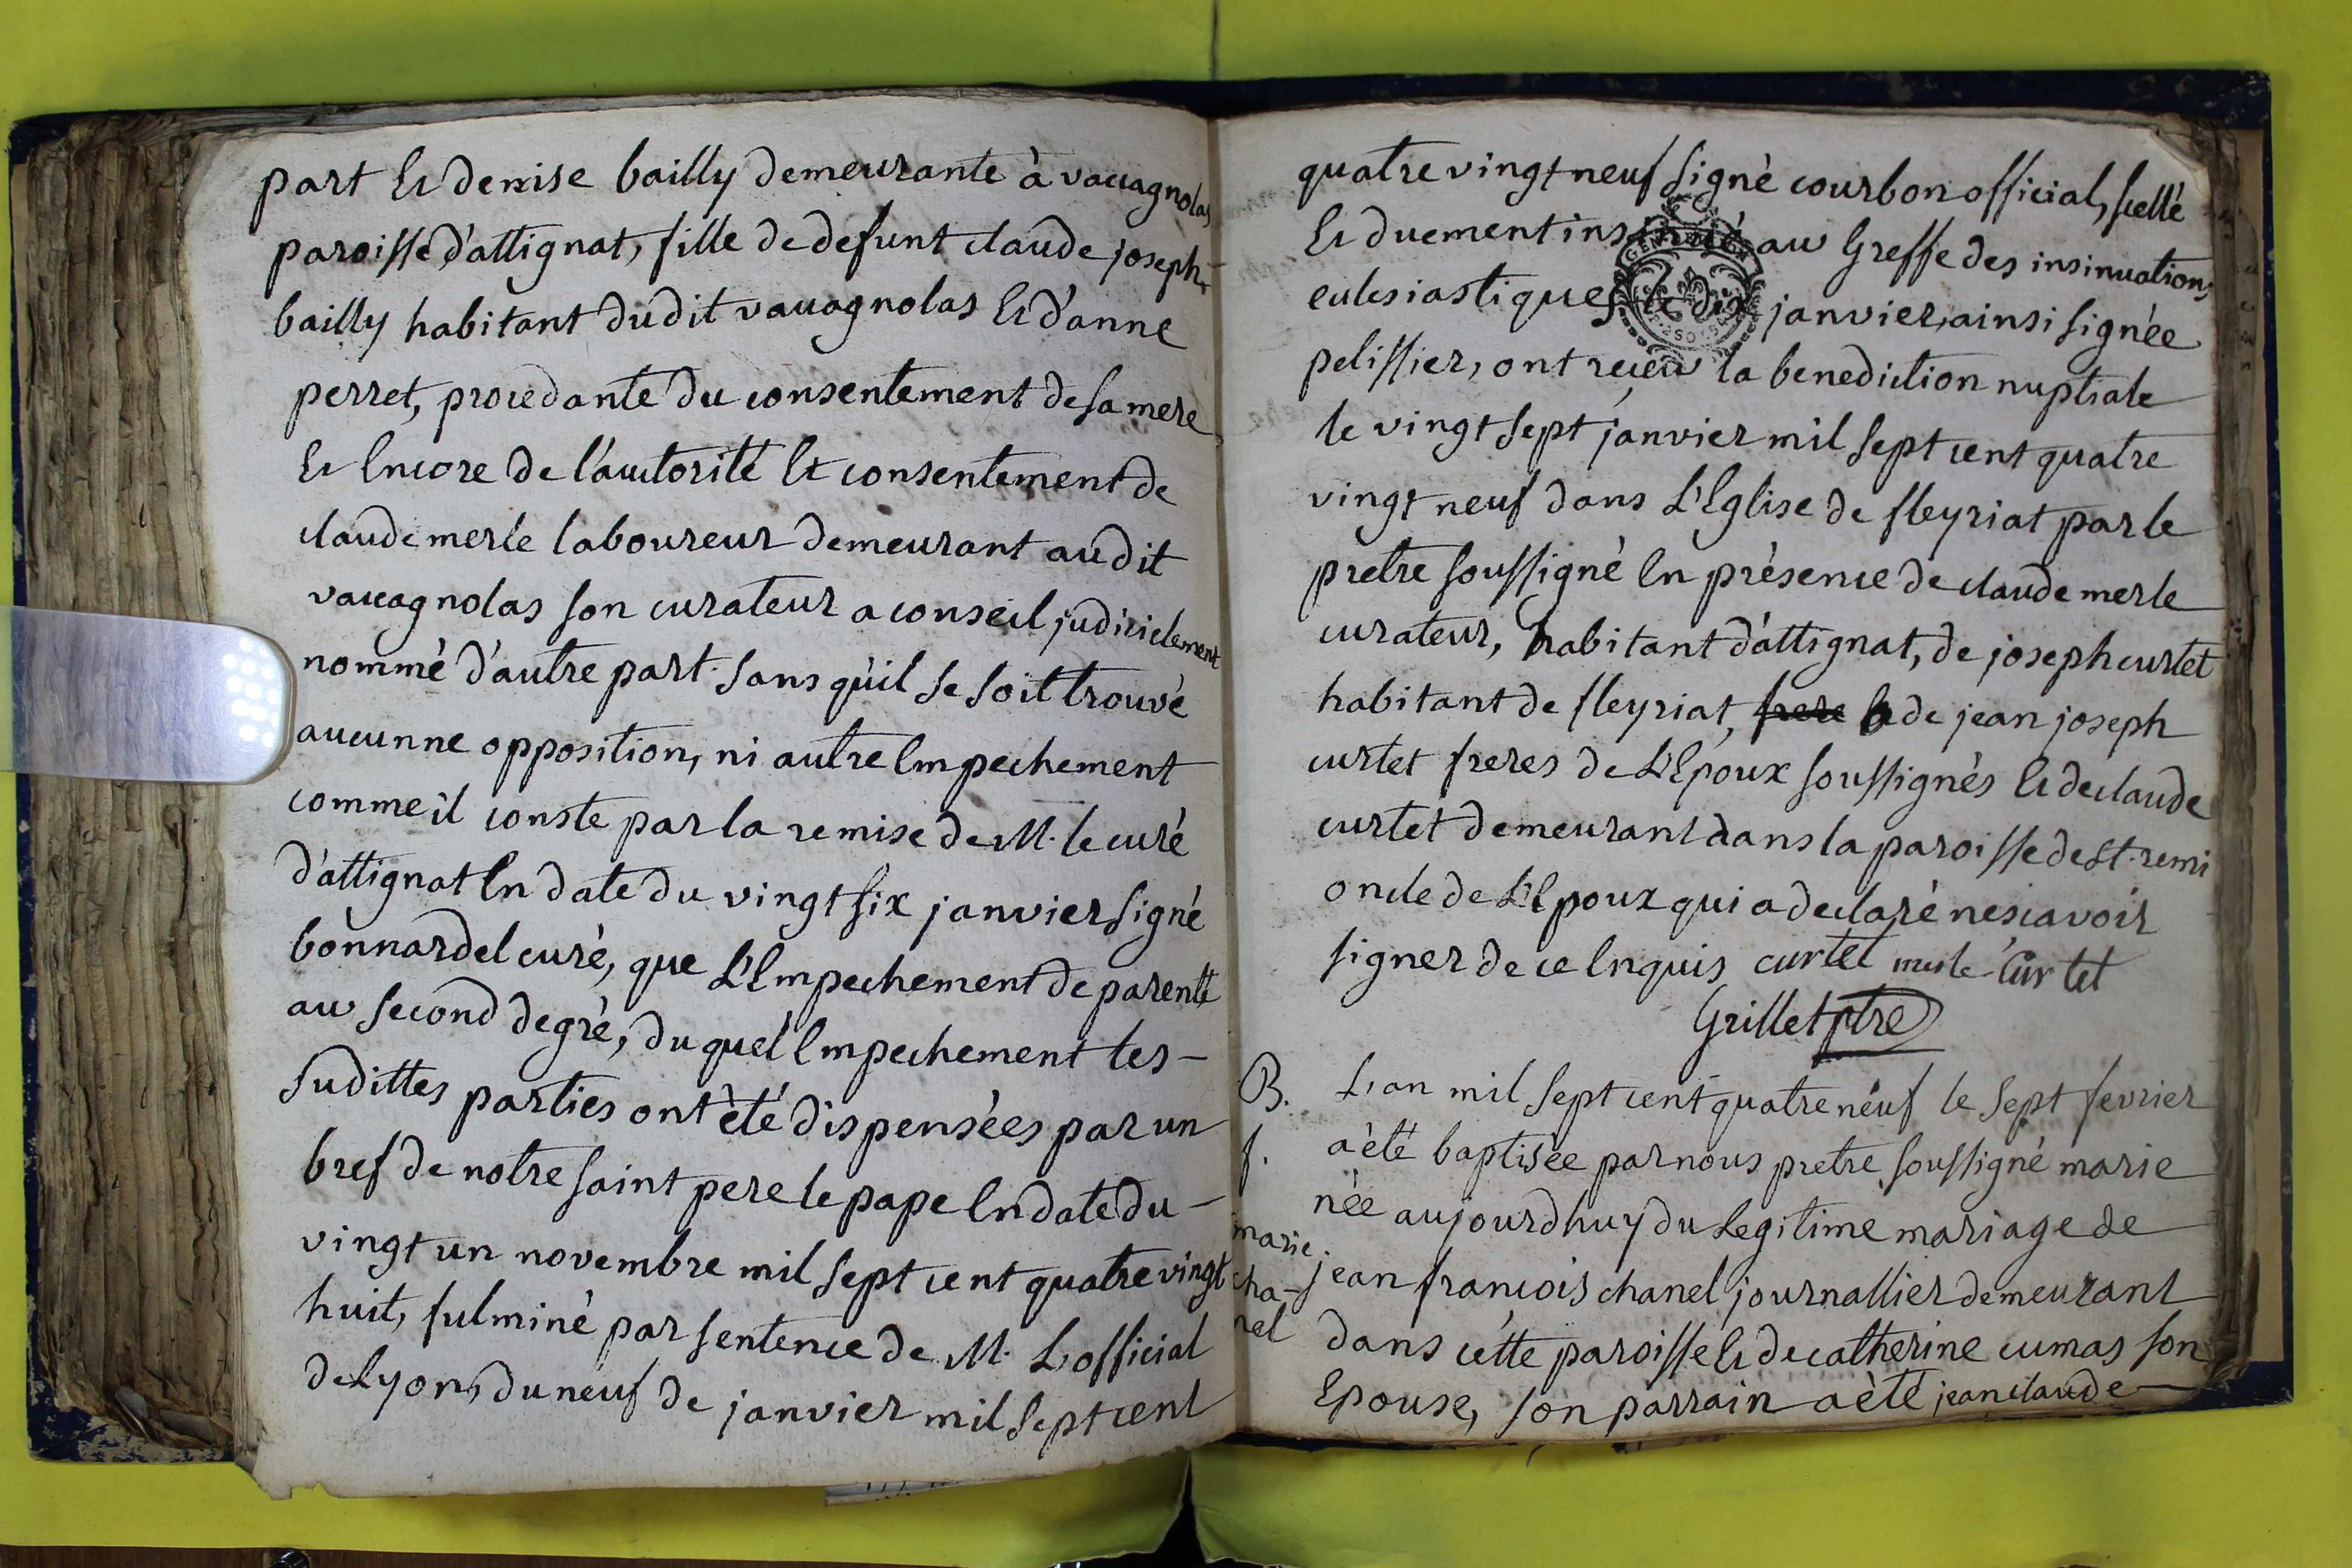 part Et denise bailly demeurante à vaccagnolas
paroisse d'attignat, fille de defunt claude joseph
bailly habitant dudit vaccagnolas Et d'anne
perret, procedante du consentement de sa mere
Et Encore de l'auctorité Et consentement de
claude merle laboureur demeurant audit
vaccagnolas son curateur a conseil judicielement
nommé d'autre part. sans qu'il se soit trouvé
aucunne opposition, ni autre Empechement
comme il conste par la remise de M. le curé
d'attignat En date du vingt six janvier signé
bonnardel curé, que L'Empechement de parenté
au second degré, du quel Empechement les-
sudittes parties ont été dispensées par un
bref de notre saint pere le pape En date du-
vingt un novembre mil sept cent quatre vingt
huit, fulminé par sentence de M. L'official
de Lyon, du neuf de janvier mil sept cent
quatre vingt neuf signé courbon official, scellé
Et duement insinué au Greffe des insinuations
eclesiastiques le dix janvier, ainsi signée
pelissier, ont reçeu la benediction nuptiale
le vingt sept janvier mil sept cent quatre
vingt neuf dans L'Eglise de fleyriat par le
pretre soussigné En présence de claude merle
curateur, habitant d'attignat, de joseph curtet
habitant de fleyriat, frere de jean joseph
curtet freres de L'Epoux soussignés Et de claude
curtet demeurant dans la paroisse de st. remi
oncle de L'Epoux qui a declaré ne scavoir
signer de ce Enquis curtet merle Curtet
Grillet ptre
B. L'an mil sept cent quatre neuf le sept fevrier
f. a été baptisée par nous pretre soussigné marie
née aujourdhuy du Legitime mariage de
marie jean francois chanel journallier demeurant
cha-
nel dans cette paroisse Et de catherine cumas son
Epouse, son parrain a été jean claude